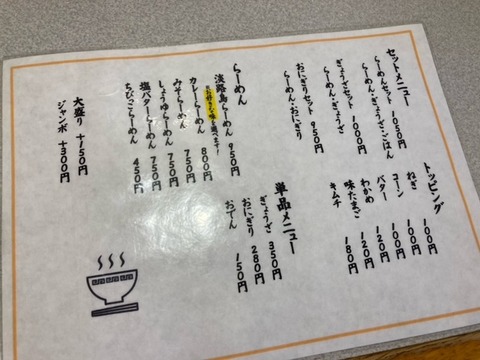 セットメニュー
らーめんセット 1050円
らーめん・ぎょうざ・ごはん
ぎょうざセット 1000円
らーめん・ぎょうざ
おにぎりセット 950円
らーめん・おにぎり
らーめん
淡路島らーめん 950円
お好きな味を選べます！
カレーらーめん 800円
みそらーめん 750円
しょうゆらーめん 750円
塩バターらーめん 750円
ちびっこらーめん 450円
大盛り +150円
ジャンボ +300円
トッピング
ねぎ 100円
コーン 100円
バター 100円
わかめ 120円
味たまご 120円
キムチ 180円
単品メニュー
ぎょうざ 350円
おにぎり 280円
おでん 150円